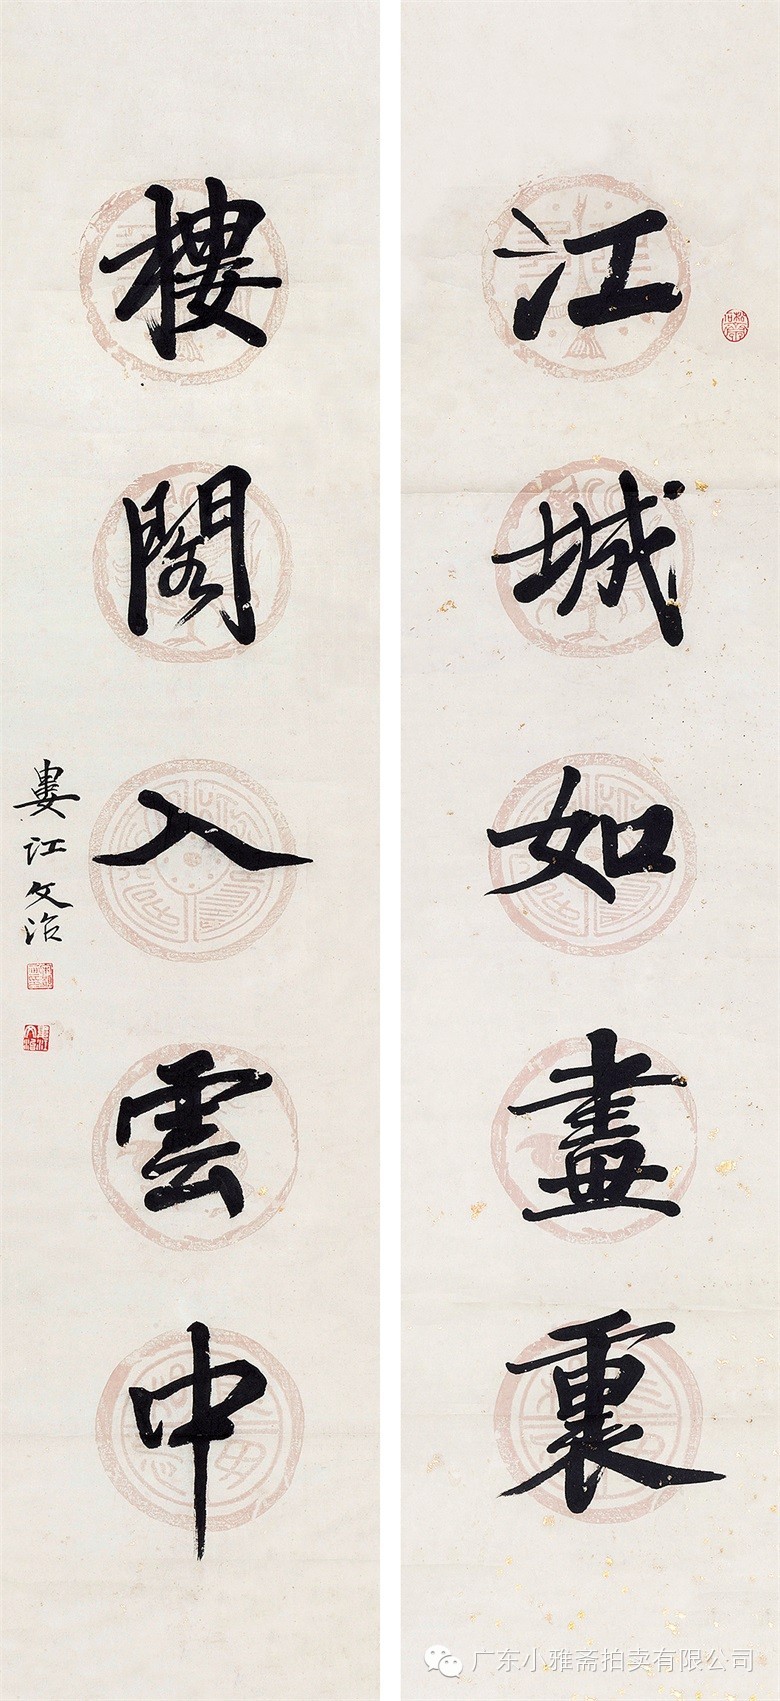 江城如畫裏
樓閣入雲中
婁江文治
广东小雅斋拍卖有限公司